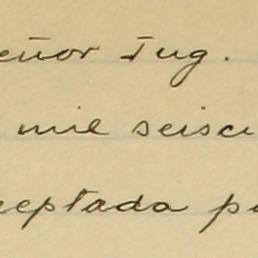 eñor Ing.
mil seisci
ceptada p